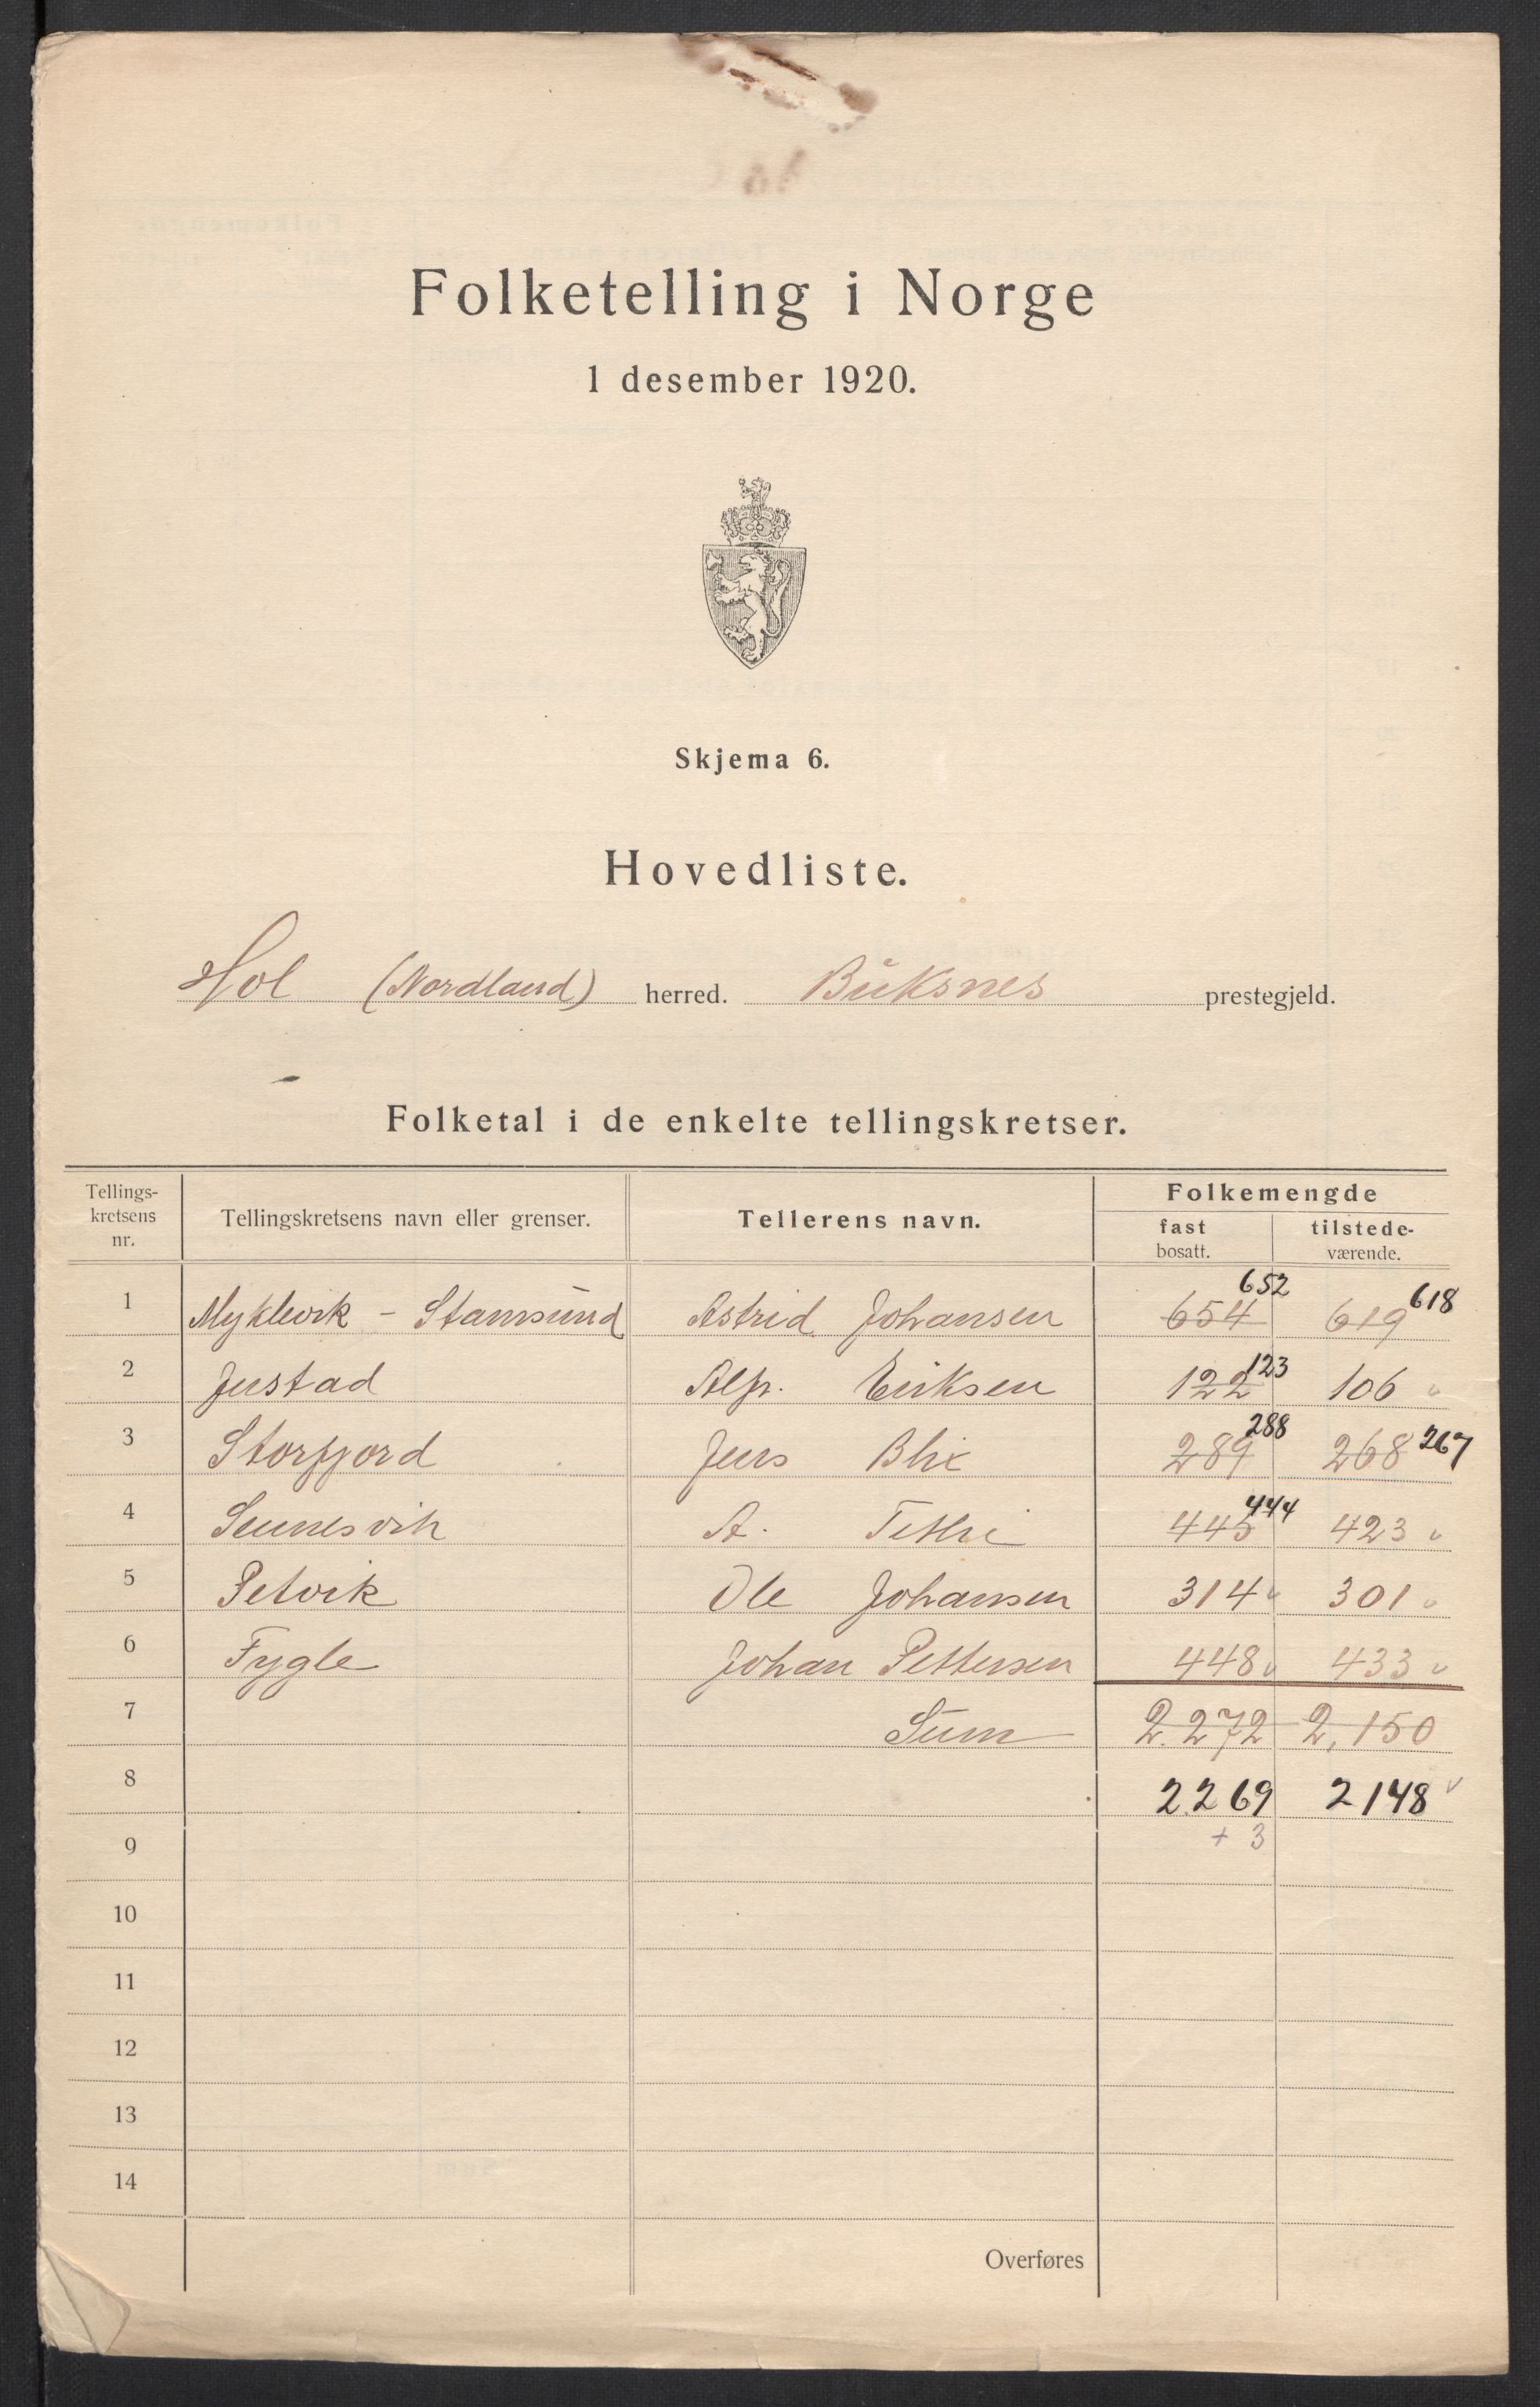 Folketelling i Norge
1 desember 1920.
Skjema 6.
Hovedliste.
Hol (Nordland) herred. Buksnes prestegjeld.
Folketal i de enkelte tellingskretser.
Tellings-kretsens nr. Tellingskretsens navn eller grenser. Tellerens navn. Folkemengde
fast bosatt. tilstede-værende.
1 Myklevik - Stamsund Astrid Johansen 654 652 619 618
2 Justad Alfr. Eriksen 122 123 106
3 Storfjord Jens Blix 289 288 268 267
4 Sennesvik A. 445 444 423
5 Petvik Ole Johansen 314 301
6 Fygle Johan Pettersen 448 433
7 Sum 2.272 2,150
8 2.269 2148
+ 3
9
10
11
12
13
14
Overføres